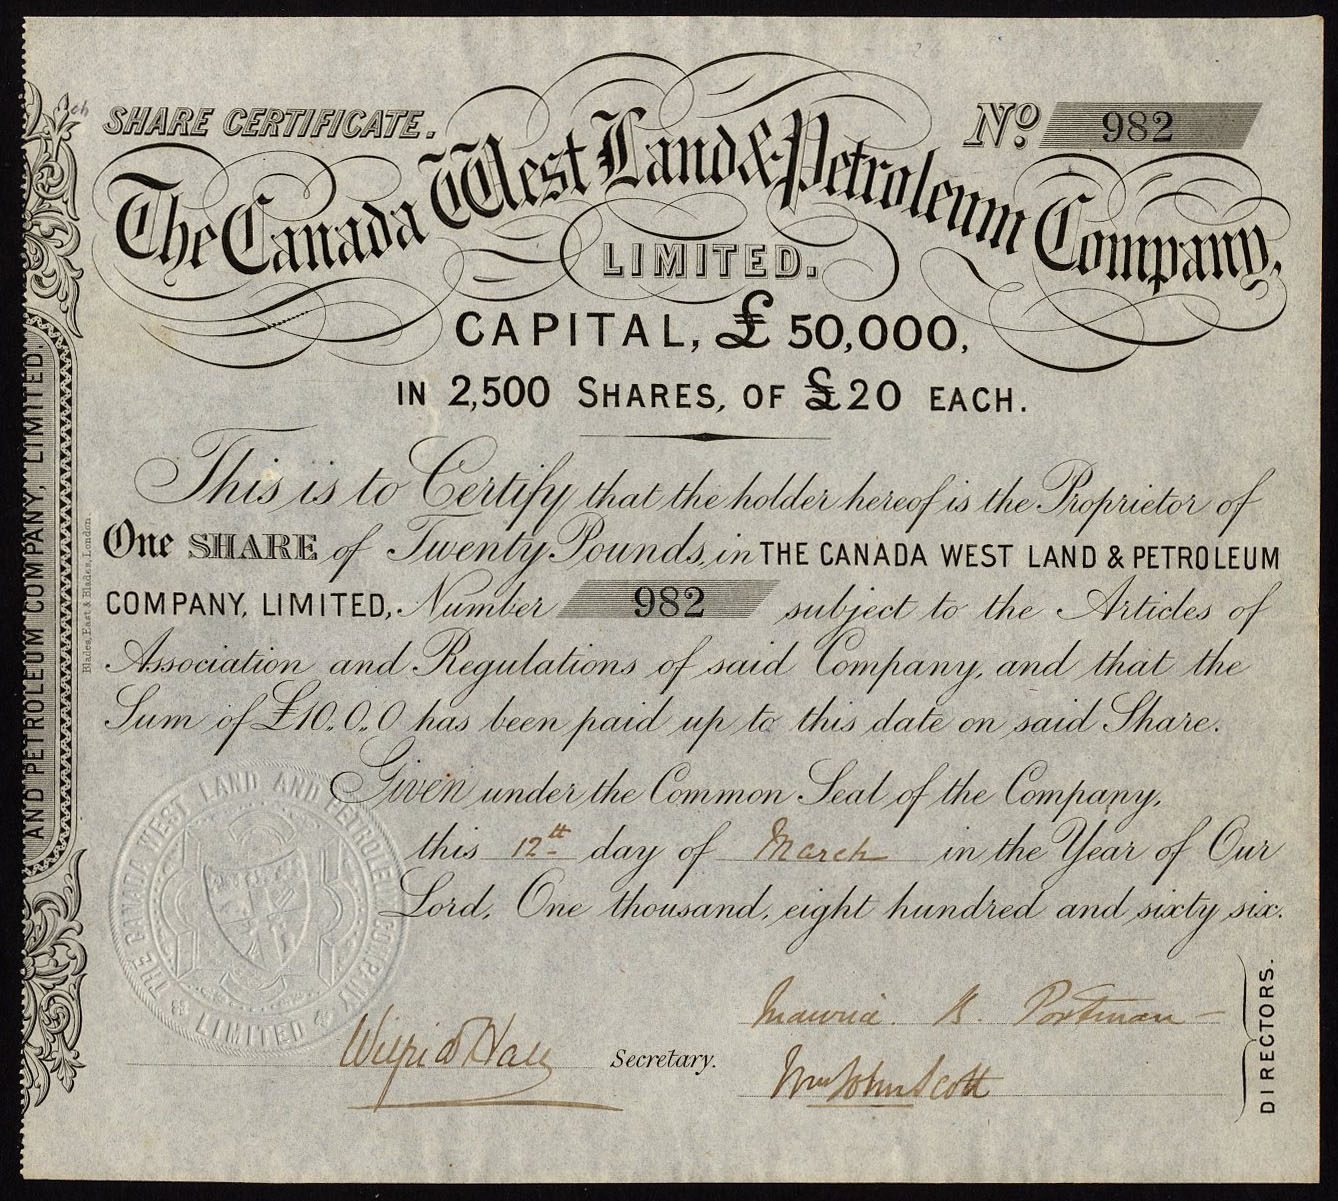 SHARE CERTIFICATE.
No. 982
The Canada West Land & Petroleum Company,
LIMITED.
CAPITAL, £50,000,
IN 2,500 SHARES, OF £20 EACH.
This is to Certify that the holder hereof is the Proprietor of
One SHARE of Twenty Pounds, in THE CANADA WEST LAND & PETROLEUM
COMPANY, LIMITED, Number 982 subject to the Articles of
Association and Regulations of said Company, and that the
Sum of £10.0.0 has been paid up to this date on said Share.
Given under the Common Seal of the Company,
this 12th day of March in the Year of Our
Lord, One thousand, eight hundred and sixty six.
THE CANADA WEST LAND AND PETROLEUM COMPANY
LIMITED
Wilfrid Hall Secretary.
B. Portman
Wm John Scott
DIRECTORS.
AND PETROLEUM COMPANY, LIMITED.
Blades, East & Blades, London.